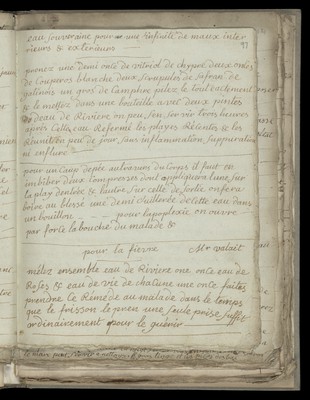 eau souveraine pour une infinité de maux inter
rieurs & exterieurs
97
prenez une demi once de vitriol de chypre deux onces
de Couperos blanche deux scrupules de safran de
un gros de Camphre pilez le tout
& le mettez dans une bouteille avec deux pintes
deau de Riviere on peu sen servir trois heures
après Cette eau Referme les playes Récentes & les
Réunit en peu de jour, sans inflammation, suppuration
ni enflure
pour un Coup depée au travers du Corps il faut
imbiber deux Compresses dont appliquera lune sur
la play dentrée & lautre sur celle de sortie on fera
boire au blessé une demi cuillerée de cette eau dans
un bouillon pour lapoplexie on ouvre
par force la bouche du malade &
pour la fievre Mr valait
mélez ensemble eau de Riviere une once eau de
Roses & eau de vie de chacune une once faites
prendre le Reméde au malade dans le temps
que le frisson le prend une seule prise suffit
ordinairement pour le guérir